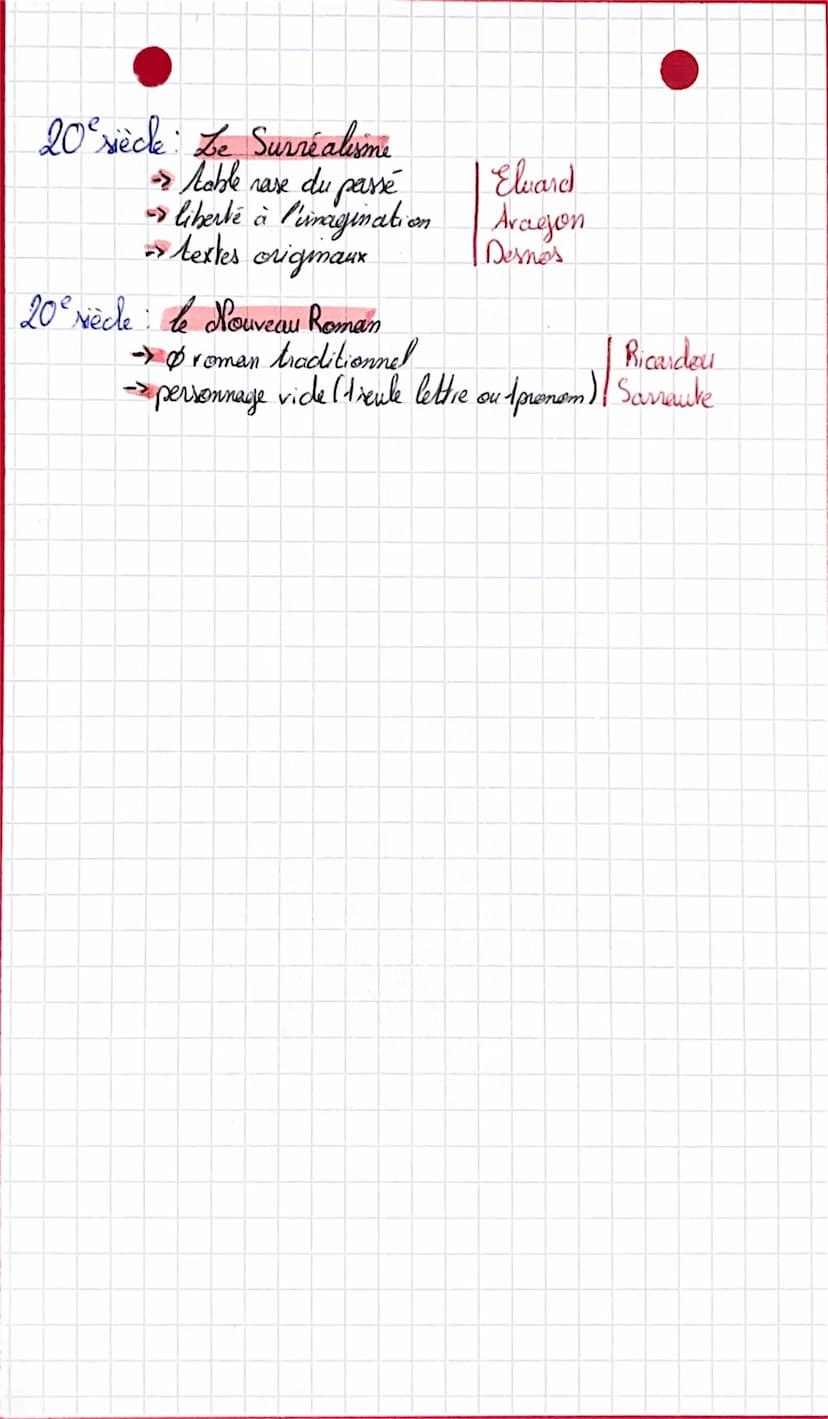 20e siècle : Le Surréalisme
-> table rase du passé | Eluard
-> liberté à l'imagination | Aragon
-> textes originaux | Desnos
20e siècle : le Nouveau Roman
-> Ø roman traditionnel | Ricardou
-> personnage vide (1 seule lettre ou 1 prenom) | Sarraute